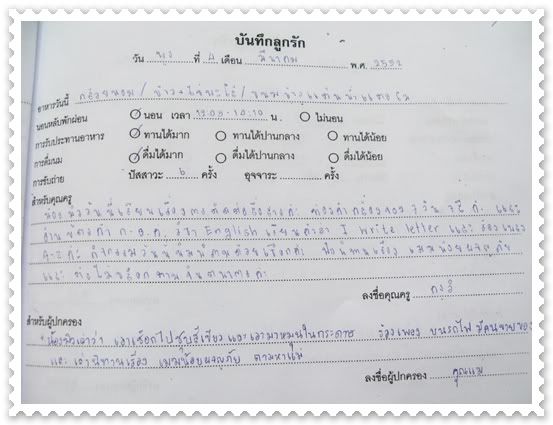 บันทึกลูกรัก
วัน พุธ ที่ 4 เดือน มีนาคม พ.ศ. 2552
อาหารวันนี้ กล้วยหอม / ข้าวไข่พะโล้ / ขนม
นอนหลับพักผ่อน นอน เวลา 12:05-14:10 น. ไม่นอน
การรับประทานอาหาร ทานได้มาก ทานได้ปานกลาง ทานได้น้อย
การดื่มนม ดื่มได้มาก ดื่มได้ปานกลาง ดื่มได้น้อย
การขับถ่าย ปัสสาวะ 6 ครั้ง อุจจาระ ครั้ง
สำหรับคุณครู
น้องมิววันนี้เรียนเรื่อง ค่ะ และ
อ่าน ก-ฮ ค่ะ วิชา English เขียนคำว่า I write letter และ ร้องเพลง
A-Z ค่ะ กิจกรรมวันนี้ ด้วยเชือกค่ะ ฟังนิทานเรื่อง แมวน้อยผจญภัย
และ ค่ะ
ลงชื่อคุณครู
สำหรับผู้ปกครอง
น้องมิวเล่าว่า เอาเชือกไปชุบสีเขียวและเอามาหมุนในกระดาษ ร้องเพลง บนรถไฟมีคนขายของ
และ เล่านิทานเรื่อง แมวน้อยผจญภัย ตามหาแม่
ลงชื่อผู้ปกครอง คุณแม่